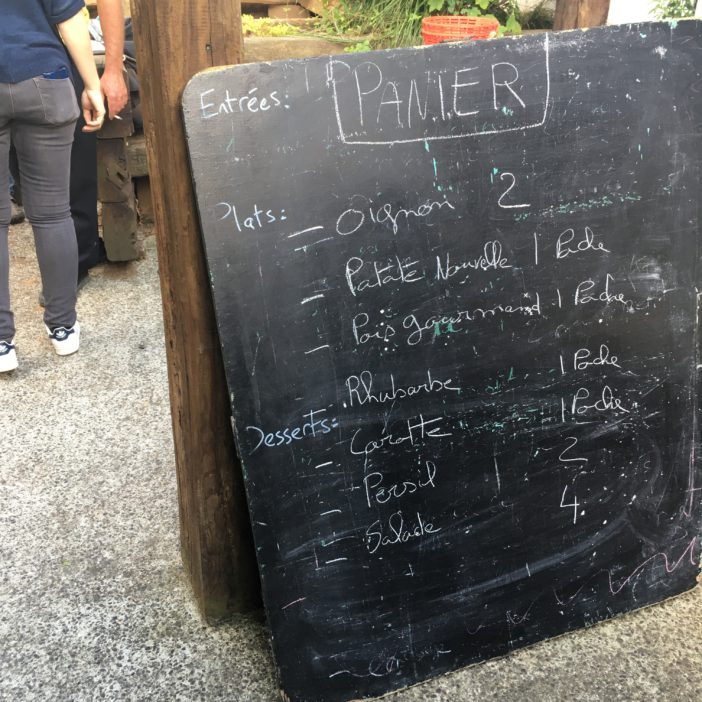 Entrées:
PANIER
Plats:
- Oignon 2
- Patate Nouvelle 1 Poche
- Pois gourmand 1 Poche
Rhubarbe 1 Poche
Desserts:
- Carotte 1 Poche
- Persil 2
- Salade 4